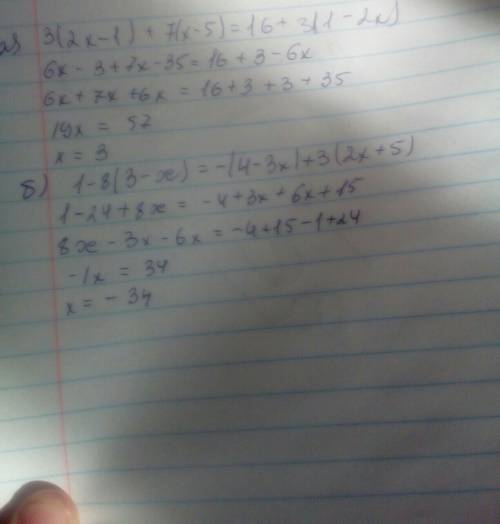 а) 3(2x-1) + 7(x-5) = 16 + 3(1-2x)
6x - 3 + 7x - 35 = 16 + 3 - 6x
6x + 7x + 6x = 16 + 3 + 3 + 35
19x = 57
x = 3
б) 1-8(3-x) = -(4-3x)+3(2x+5)
1-24+8x = -4+3x+6x+15
8x - 3x - 6x = -4+15-1+24
-1x = 34
x = - 34